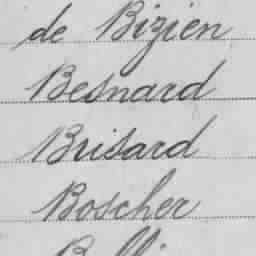 de Bizien
Besnard
Brisard
Boscher